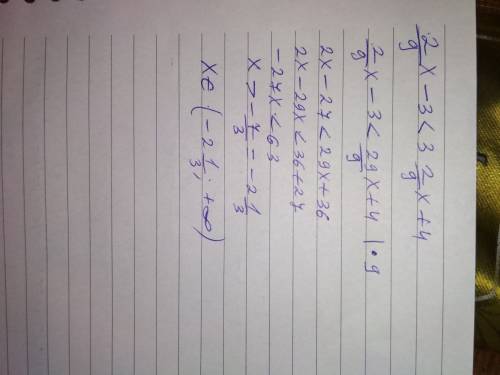 2/9 x - 3 < 3 2/9 x + 4
2/9 x - 3 < 29/9 x + 4 | • 9
2x - 27 < 29x + 36
2x - 29x < 36 + 27
-27x < 63
x > -7/3 = -2 1/3
x ∈ (-2 1/3; +∞)